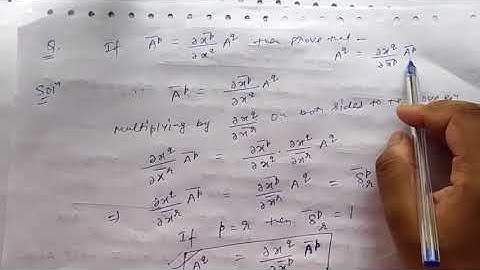 Q. If A̅ᵖ = ∂x̅ᵖ/∂x^q A^q then prove that – A^q = ∂x^q/∂x̅ᵖ A̅ᵖ
Solⁿ ∵ A̅ᵖ = ∂x̅ᵖ/∂x^q . A^q
Multiplying by ∂x^q/∂x̅ʳ on both sides to the above
∂x^q/∂x̅ʳ A̅ᵖ = ∂x̅ᵖ/∂x^q . ∂x^q/∂x̅ʳ A^q
⇒ ∂x^q/∂x̅ʳ A̅ᵖ = ∂x̅ᵖ/∂x̅ʳ A^q = δ̅ᵖᵣ
If p = r then δ̅ᵖᵣ = 1
A^q = ∂x^q/∂x̅ᵖ A̅ᵖ